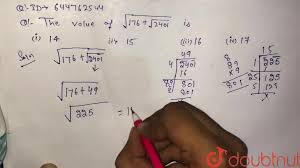 Q.ID→ 644762544
Q:- The value of √176 + √2401 is
(i) 14 (ii) 15 (iii) 16 (iv) 17
Soln
√176 + √2401
√176 + 49
√225 = 1
49
4 2401
16
801
801
15
1 225
1
25 125
125
doubtnut